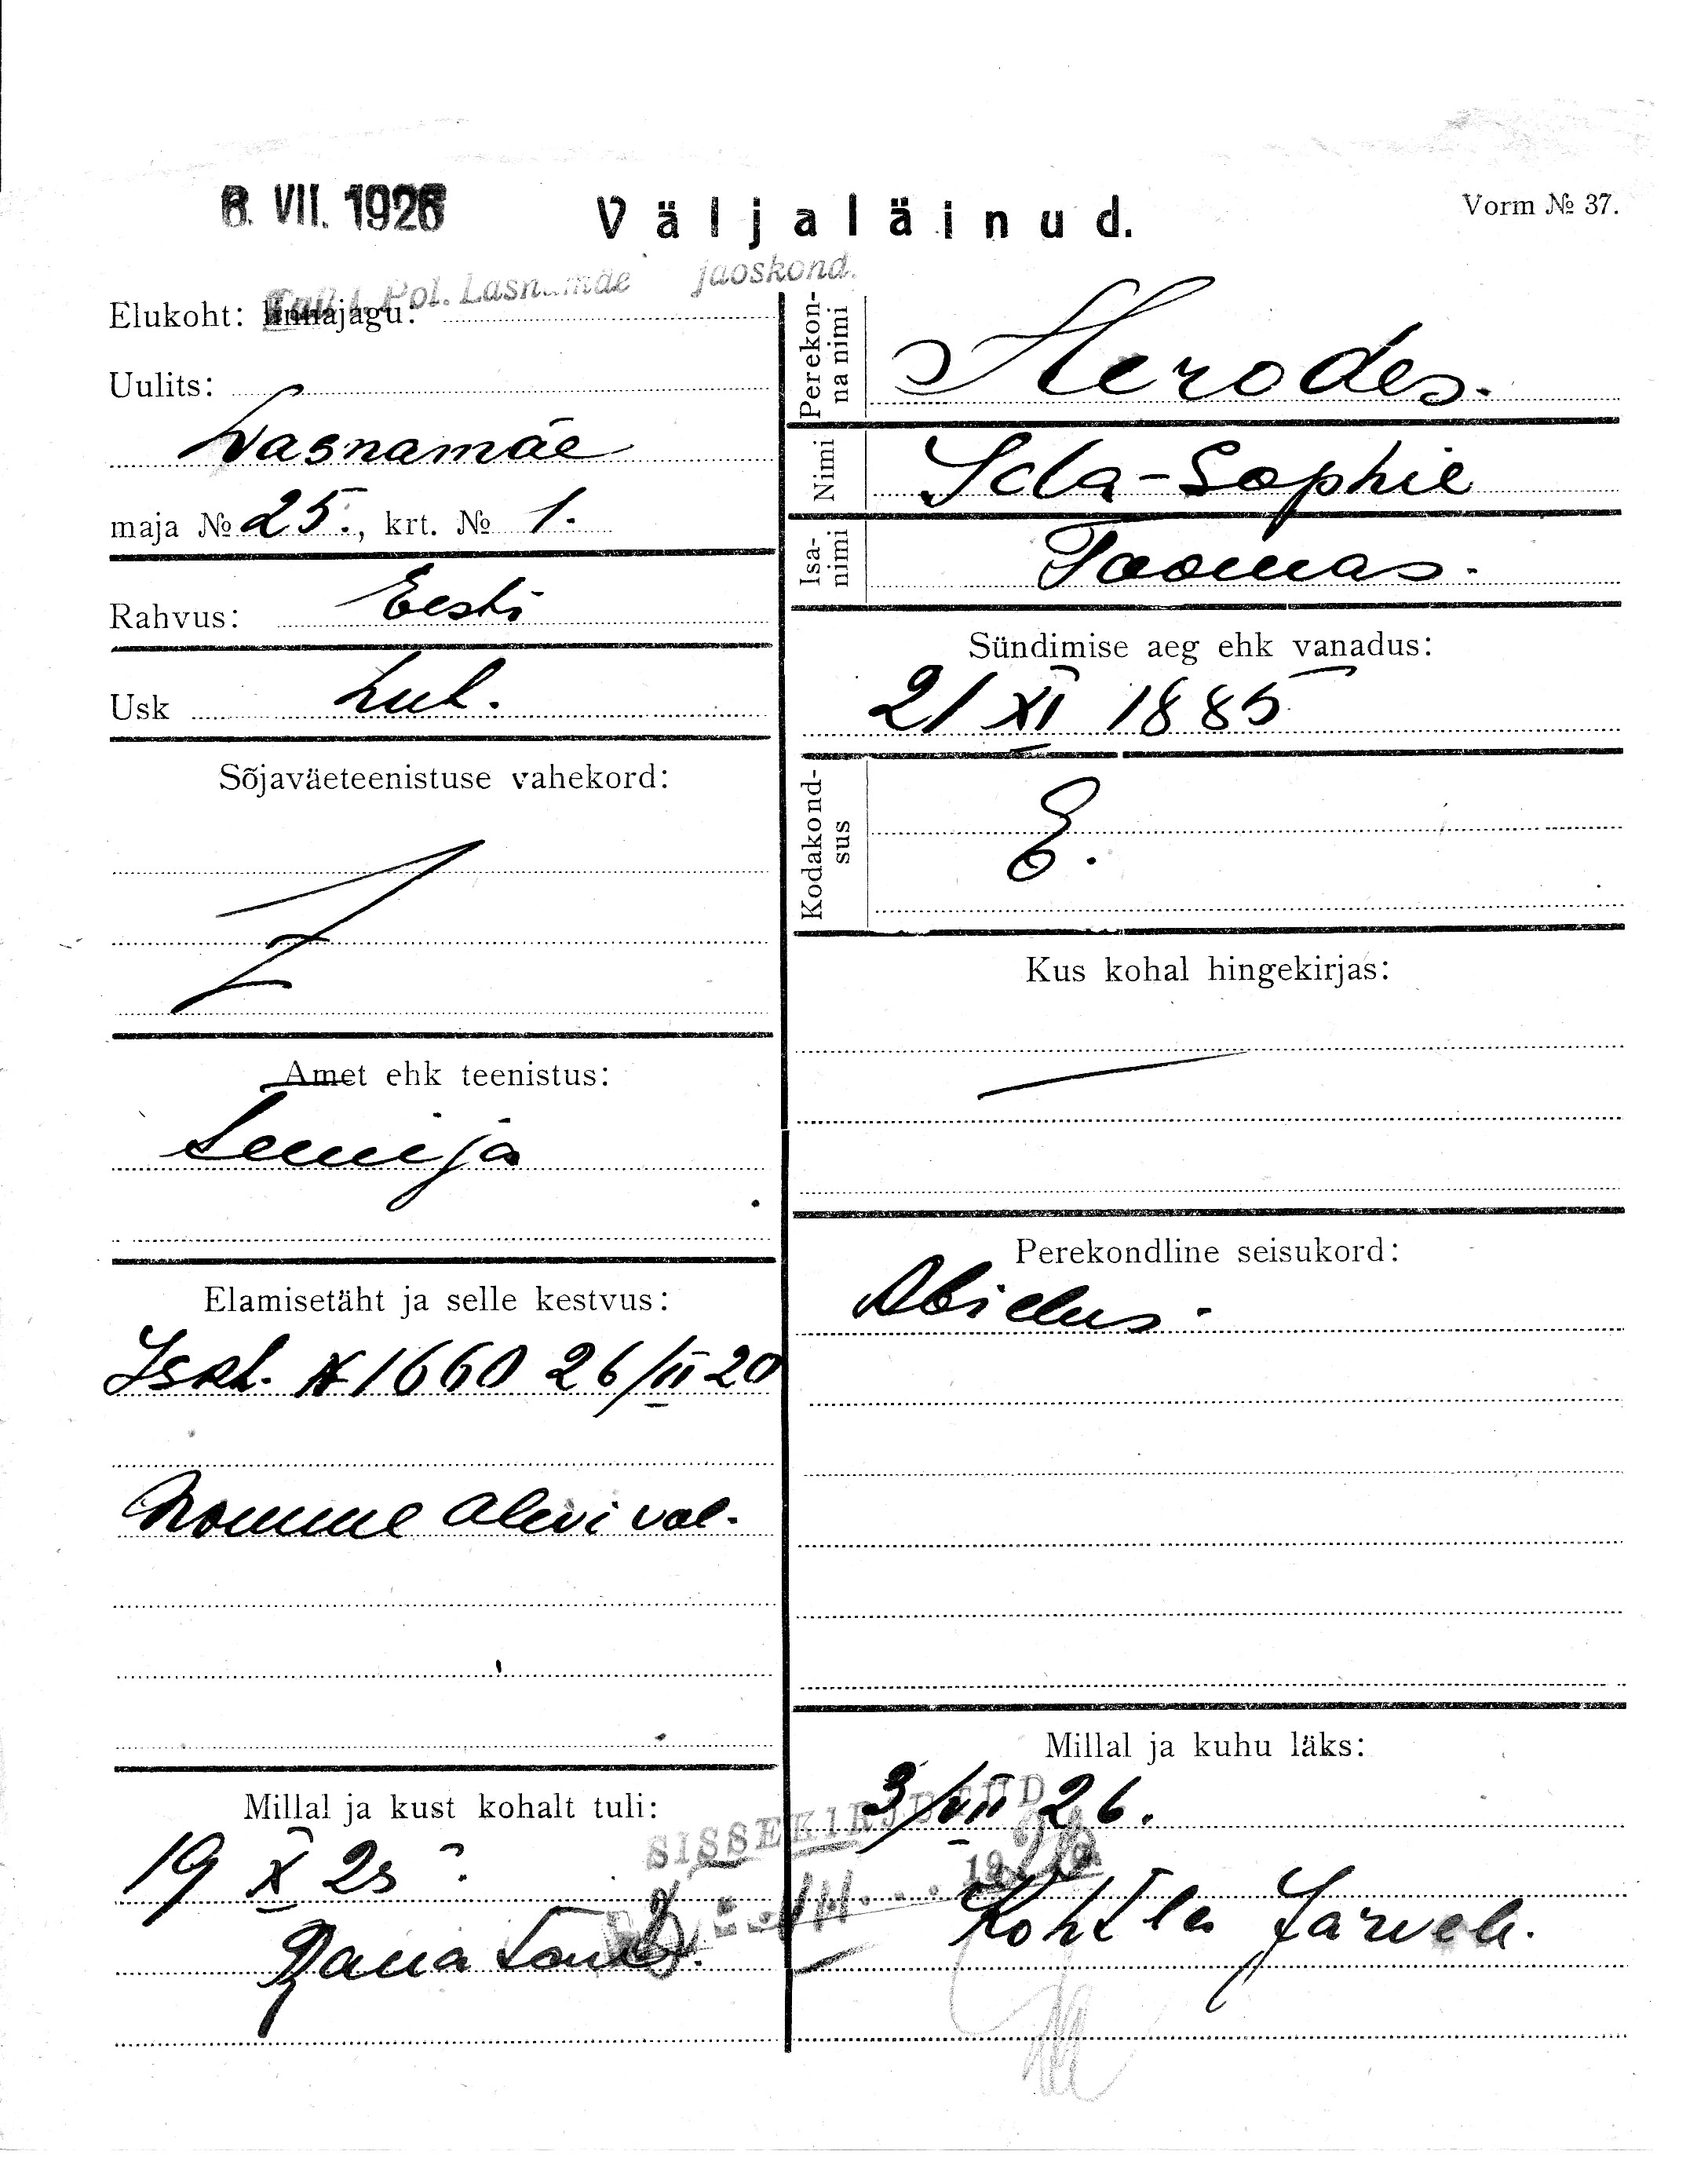 6. VII. 1926
Väljaläinud.
Vorm № 37.
Tall. l. Pol. Lasnamäe jaoskond.
Elukoht: linnajagu:
Uulits:
Lasnamäe
maja № 25., krt. № 1.
Rahvus: Eesti
Usk Lut.
Sõjaväeteenistuse vahekord:
Amet ehk teenistus:
Teenija
Elamisetäht ja selle kestvus:
Iskt. № 1660 26/II 20
Nõmme alevi val.
Millal ja kust kohalt tuli:
19 X 25
Perekonna nimi
Herodes.
Nimi
Ida-Sophie
Isanimi
Toomas.
Sündimise aeg ehk vanadus:
21 XI 1885
Kodakondsus
E.
Kus kohal hingekirjas:
Perekondline seisukord:
Abielus.
Millal ja kuhu läks:
3/VII 26.
Kohtla Järvele.
SISSEKIRJUTUD